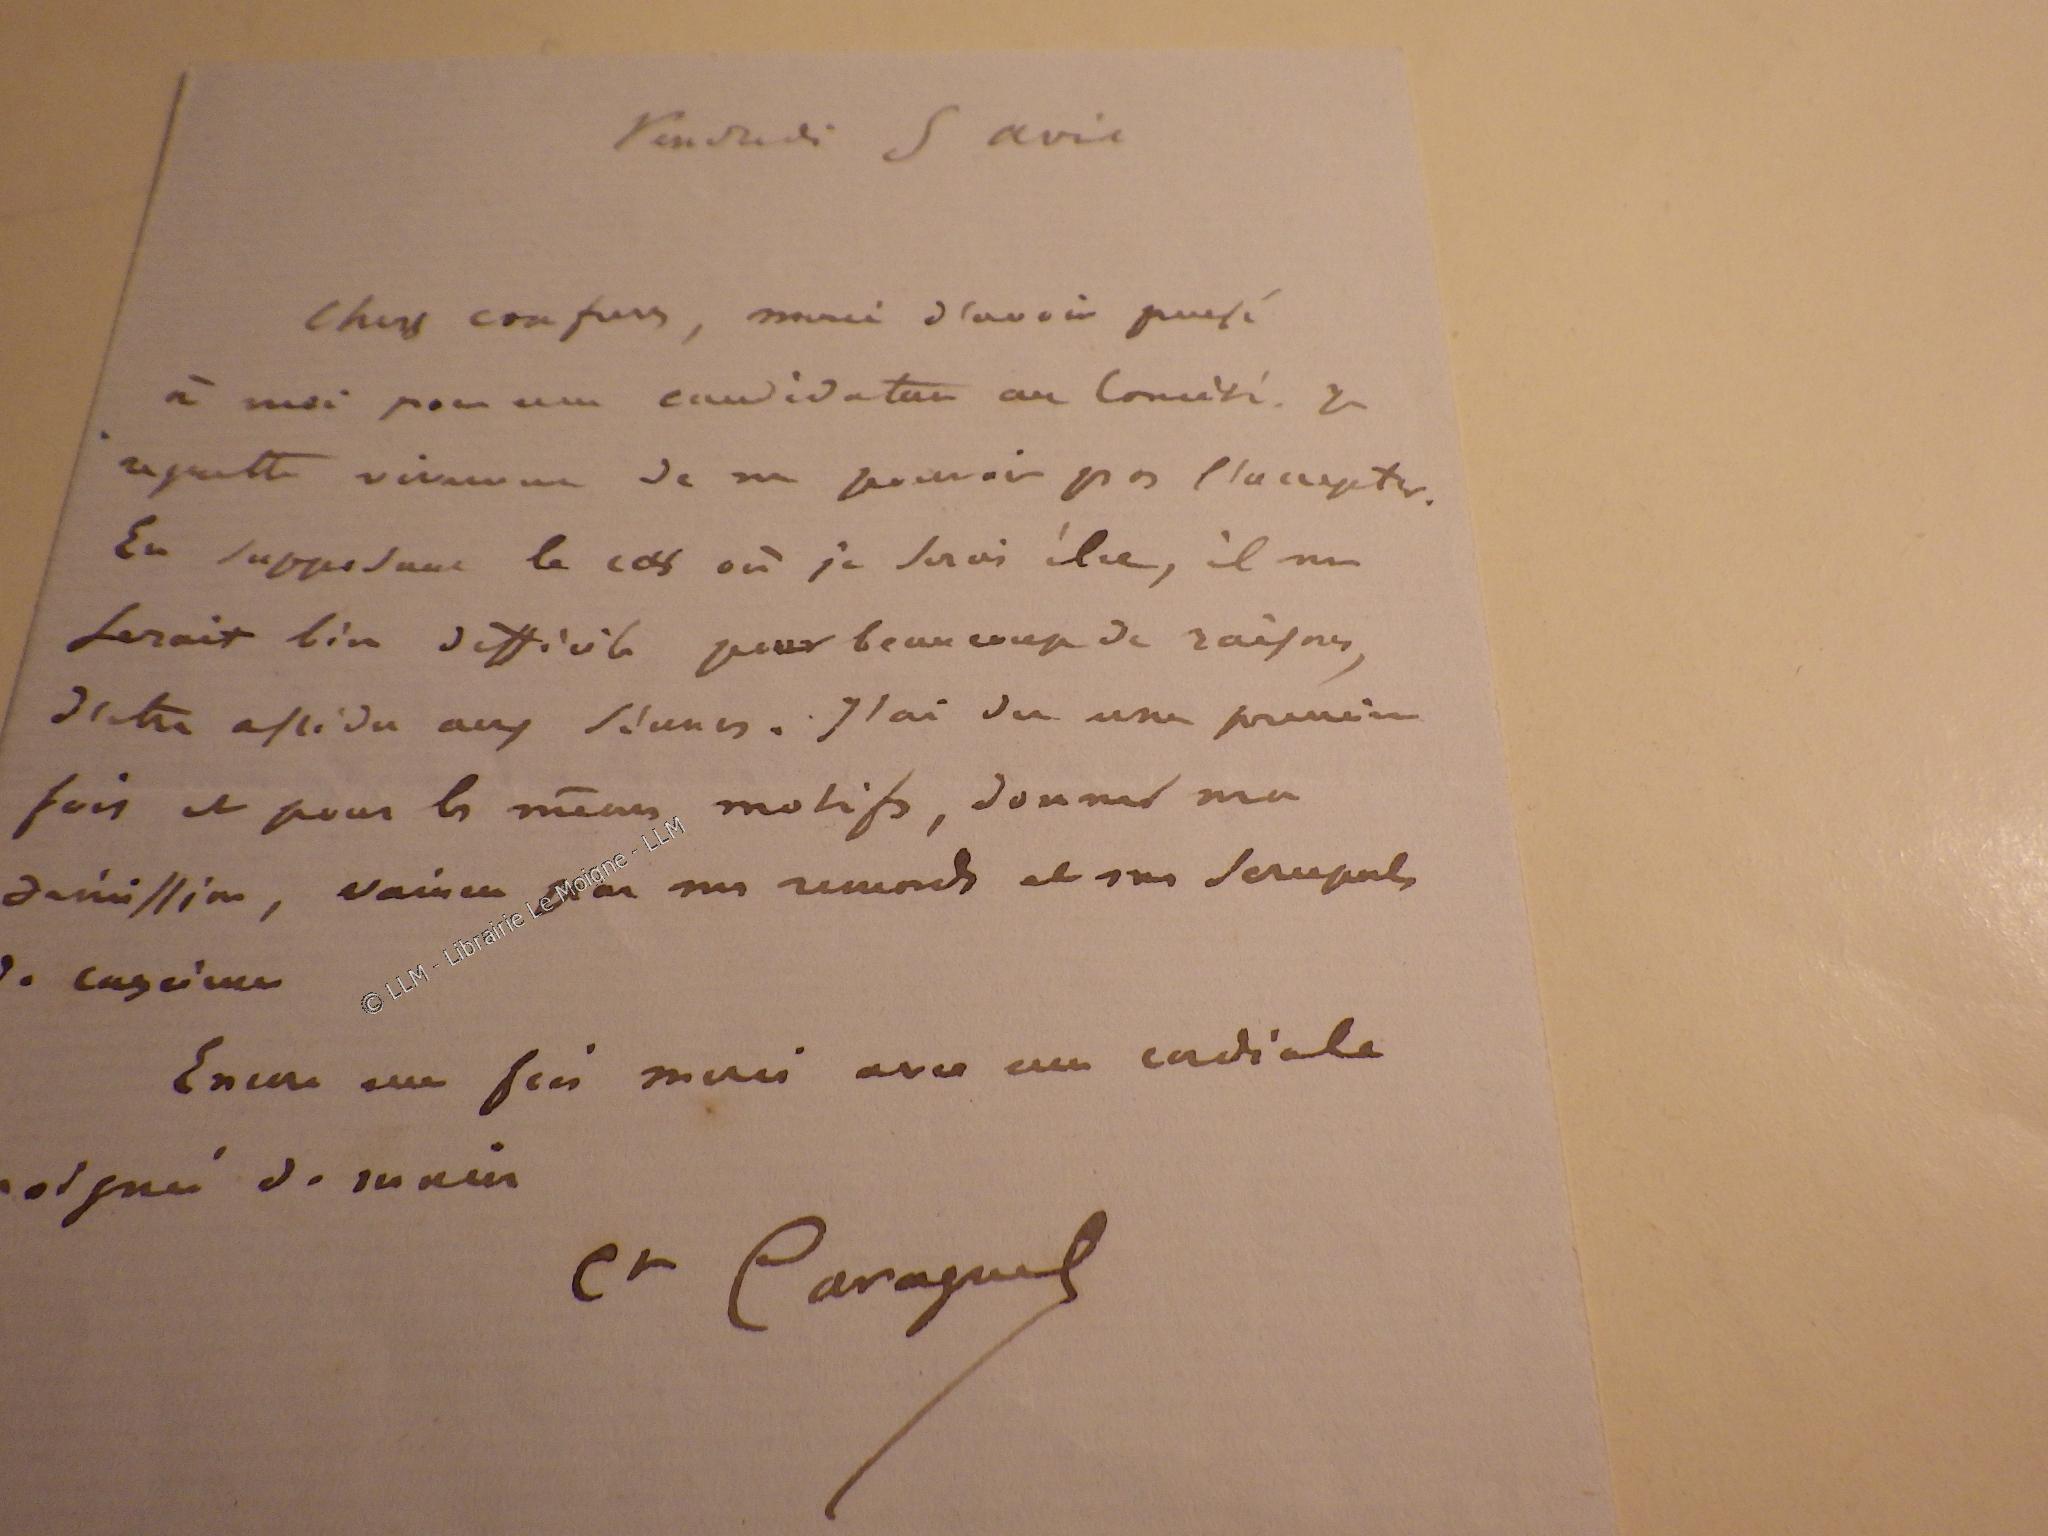 Vendredi 5 avril
Chers confrères, merci d'avoir pensé
à moi pour une candidature au Comité. Je
regrette vivement de ne pouvoir pas l'accepter.
En supposant le cas où je serais élu, il me
serait bien difficile pour beaucoup de raisons,
d'être assidu aux séances. J'ai du une première
fois et pour les mêmes motifs, donner ma
démission, vaincu par mes remords et mes scrupules
de conscience
Encore une fois merci avec une cordiale
poignée de main
Ct Caraguel
© LLM - Librairie Le Moigne - LLM